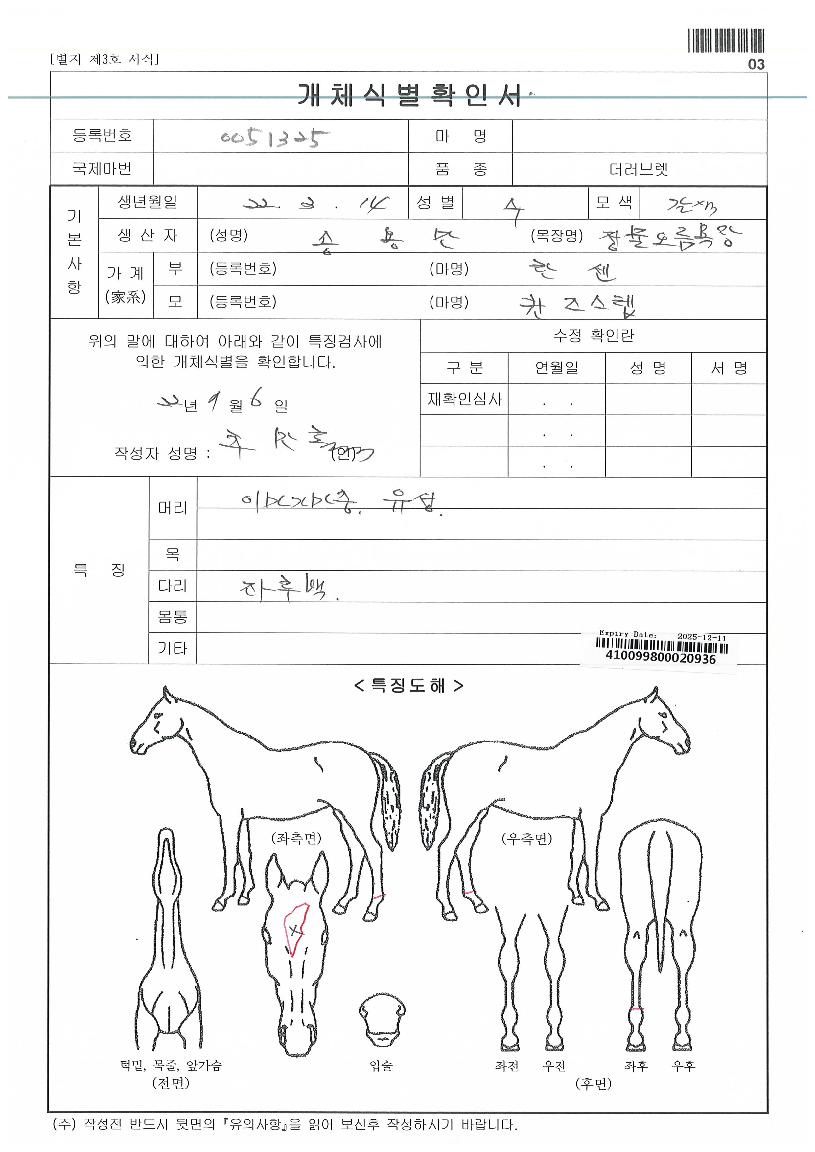 [별지 제3호 서식]
03
개체식별확인서
등록번호 0051325 마 명
국제마번 품 종 더러브렛
기본사항
생년월일 22. 3. 14 성별 수 모색 갈색
생산자 (성명) 송용만 (목장명)
가계(家系) 부 (등록번호) (마명) 한센
모 (등록번호) (마명) 퀸즈스텝
위의 말에 대하여 아래와 같이 특징검사에
의한 개체식별을 확인합니다.
22년 9월 6일
작성자 성명 : (인)
수정 확인란
구분 연월일 성명 서명
재확인심사 . .
. .
. .
특 징
머리 유성.
목
다리 좌후백.
몸통
기타
Expiry Date: 2025-12-11
410099800020936
< 특징도해 >
(좌측면) (우측면)
턱밑, 목줄, 앞가슴 입술 좌전 우전 좌후 우후
(전면) (후면)
(주) 작성전 반드시 뒷면의 『유의사항』을 읽어 보신후 작성하시기 바랍니다.